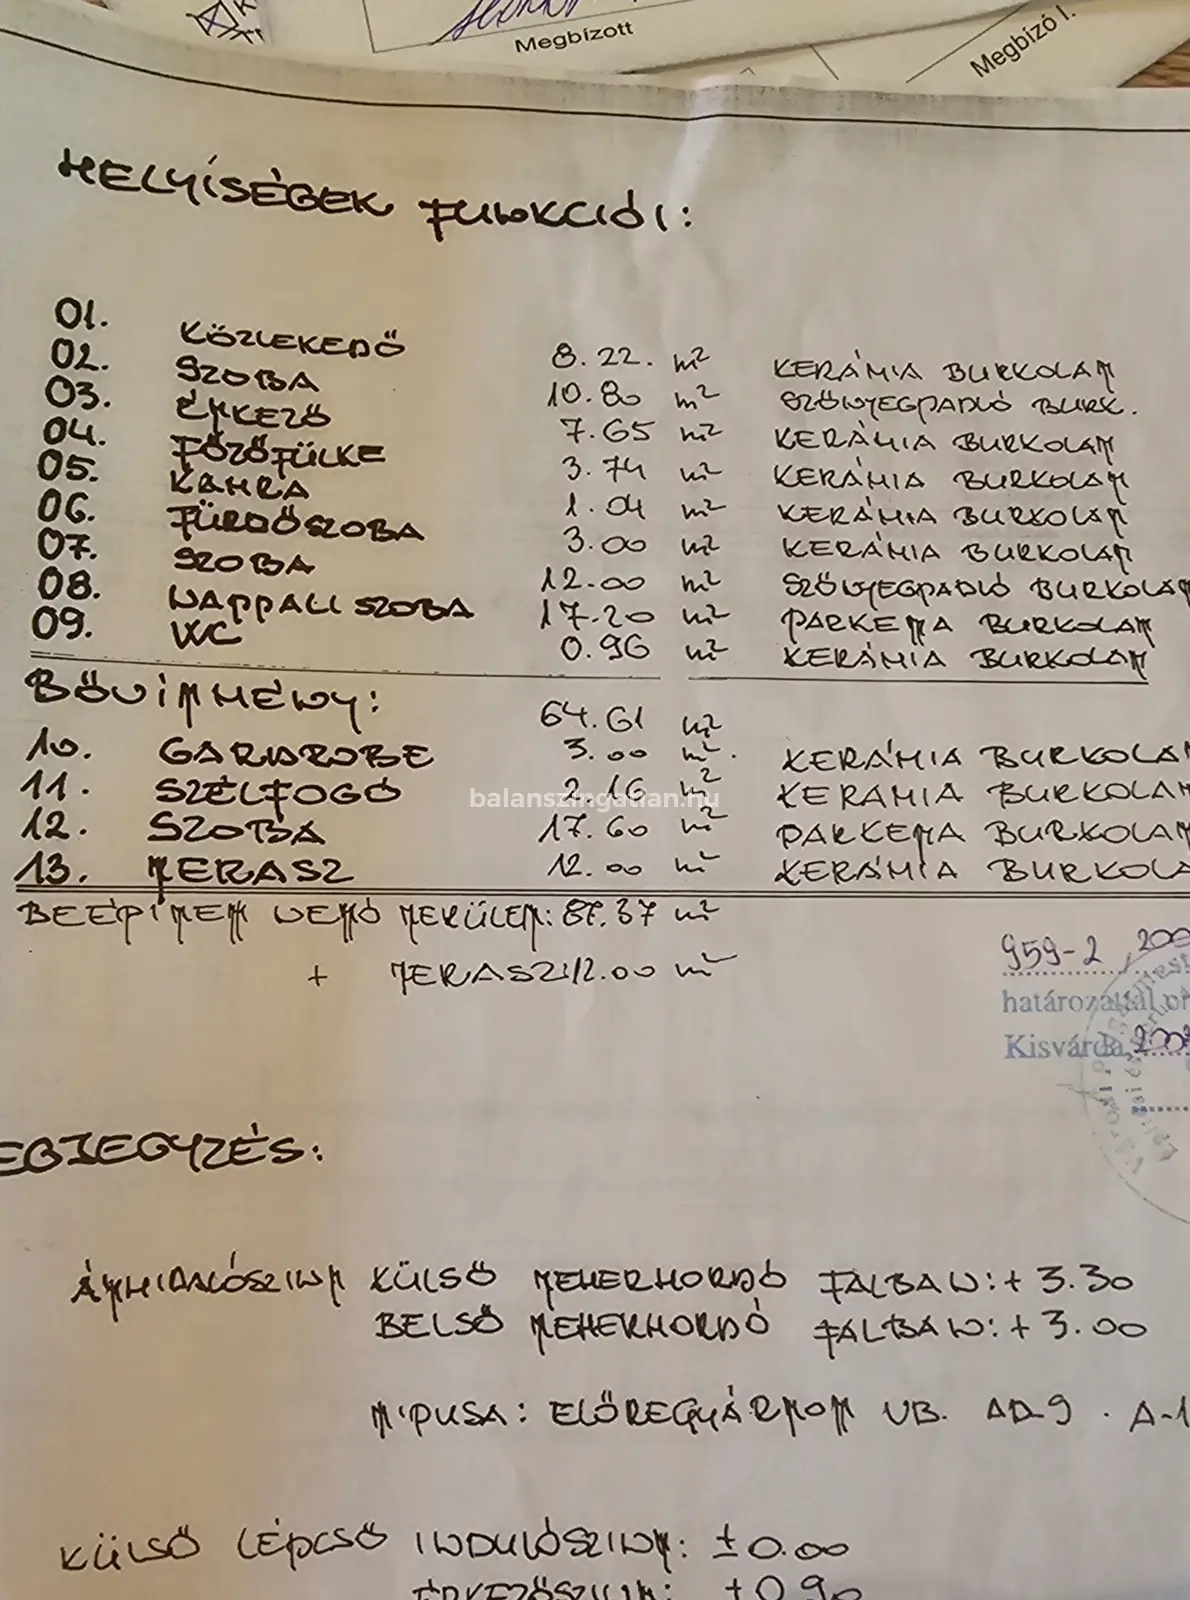 Megbízott
Megbízó I.
HELYÍSÉGEK FUNKCIÓI:
01. KÖZLEKEDŐ 8.22. m² KERÁMIA BURKOLAT
02. SZOBA 10.80 m² SZŐNYEGPADLÓ BURK.
03. ÉTKEZŐ 7.65 m² KERÁMIA BURKOLAT
04. FŐZŐFÜLKE 3.74 m² KERÁMIA BURKOLAT
05. KAMRA 1.04 m² KERÁMIA BURKOLAT
06. FÜRDŐSZOBA 3.00 m² KERÁMIA BURKOLAT
07. SZOBA 12.00 m² SZŐNYEGPADLÓ BURKOLAT
08. NAPPALI SZOBA 17.20 m² PARKETTA BURKOLAT
09. WC 0.96 m² KERÁMIA BURKOLAT
BŐVÍTMÉNY: 64.61 m²
10. GARDROBE 3.00 m². KERÁMIA BURKOLA
11. SZÉLFOGÓ 2.16 m² KERAMIA BURKOLA
12. SZOBA 17.60 m² PARKETTA BURKOLA
13. TERASZ 12.00 m² KERÁMIA BURKOLA
BEÉPÍTETT NETTÓ TERÜLET: 87.37 m²
+ TERASZ: 12.00 m²
959-2 / 200
határozattal
Kisvárda, 200
balanszingatlan.hu
EGJEGYZÉS:
ÁTHIDALÓSZINT KÜLSŐ TEHERHORDÓ FALBAN: + 3.30
BELSŐ TEHERHORDÓ FALBAN: + 3.00
TIPUSA: ELŐREGYÁRTOTT VB. AD-9 . A-1
KÜLSŐ LÉPCSŐ INDULÓSZINT: ±0.00
ÉRKEZŐSZINT: +0.90